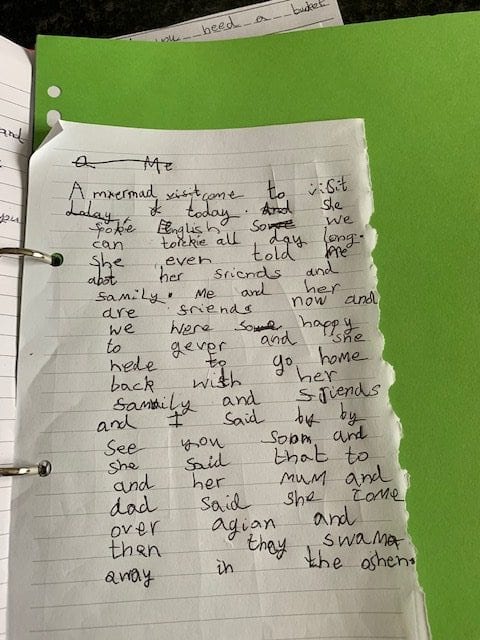 you need a bucket
and
pu
a Me
A mxermad visit come to visit
today & today. And she
spoke English some we
can torkie all day long.
she even told me
abot her sriends and
samily. Me and her
are sriends now and
we were some happy
to gever and she
hede to go home
back wish her
samily and sriends
and I said by by
see you soon and
she said that to
and her mum and
dad said she come
over agian and
then they swam
away in the oshen.